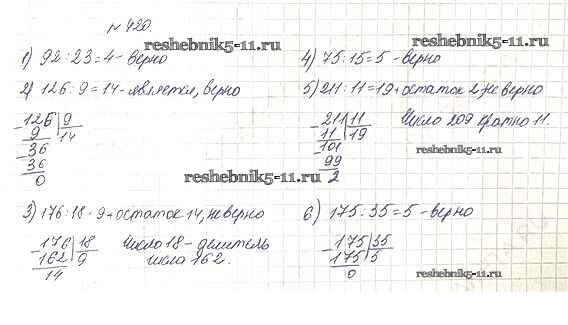 № 420.
reshebnik5-11.ru
1) 92 : 23 = 4 - верно
2) 126 : 9 = 14 - является, верно
- 126 | 9
9 14
- 36
36
0
reshebnik5-11.ru
3) 176 : 18 - 9 + остаток 14, неверно
- 176 | 18
162 9
14
Число 18 - делитель
числа 162.
reshebnik5-11.ru
4) 75 : 15 = 5 - верно
5) 211 : 11 = 19 + остаток 2, неверно
- 211 | 11
11 19
- 101
99
2
Число 209 кратно 11.
reshebnik5-11.ru
6) 175 : 35 = 5 - верно
- 175 | 35
175 5
0
reshebnik5-11.ru